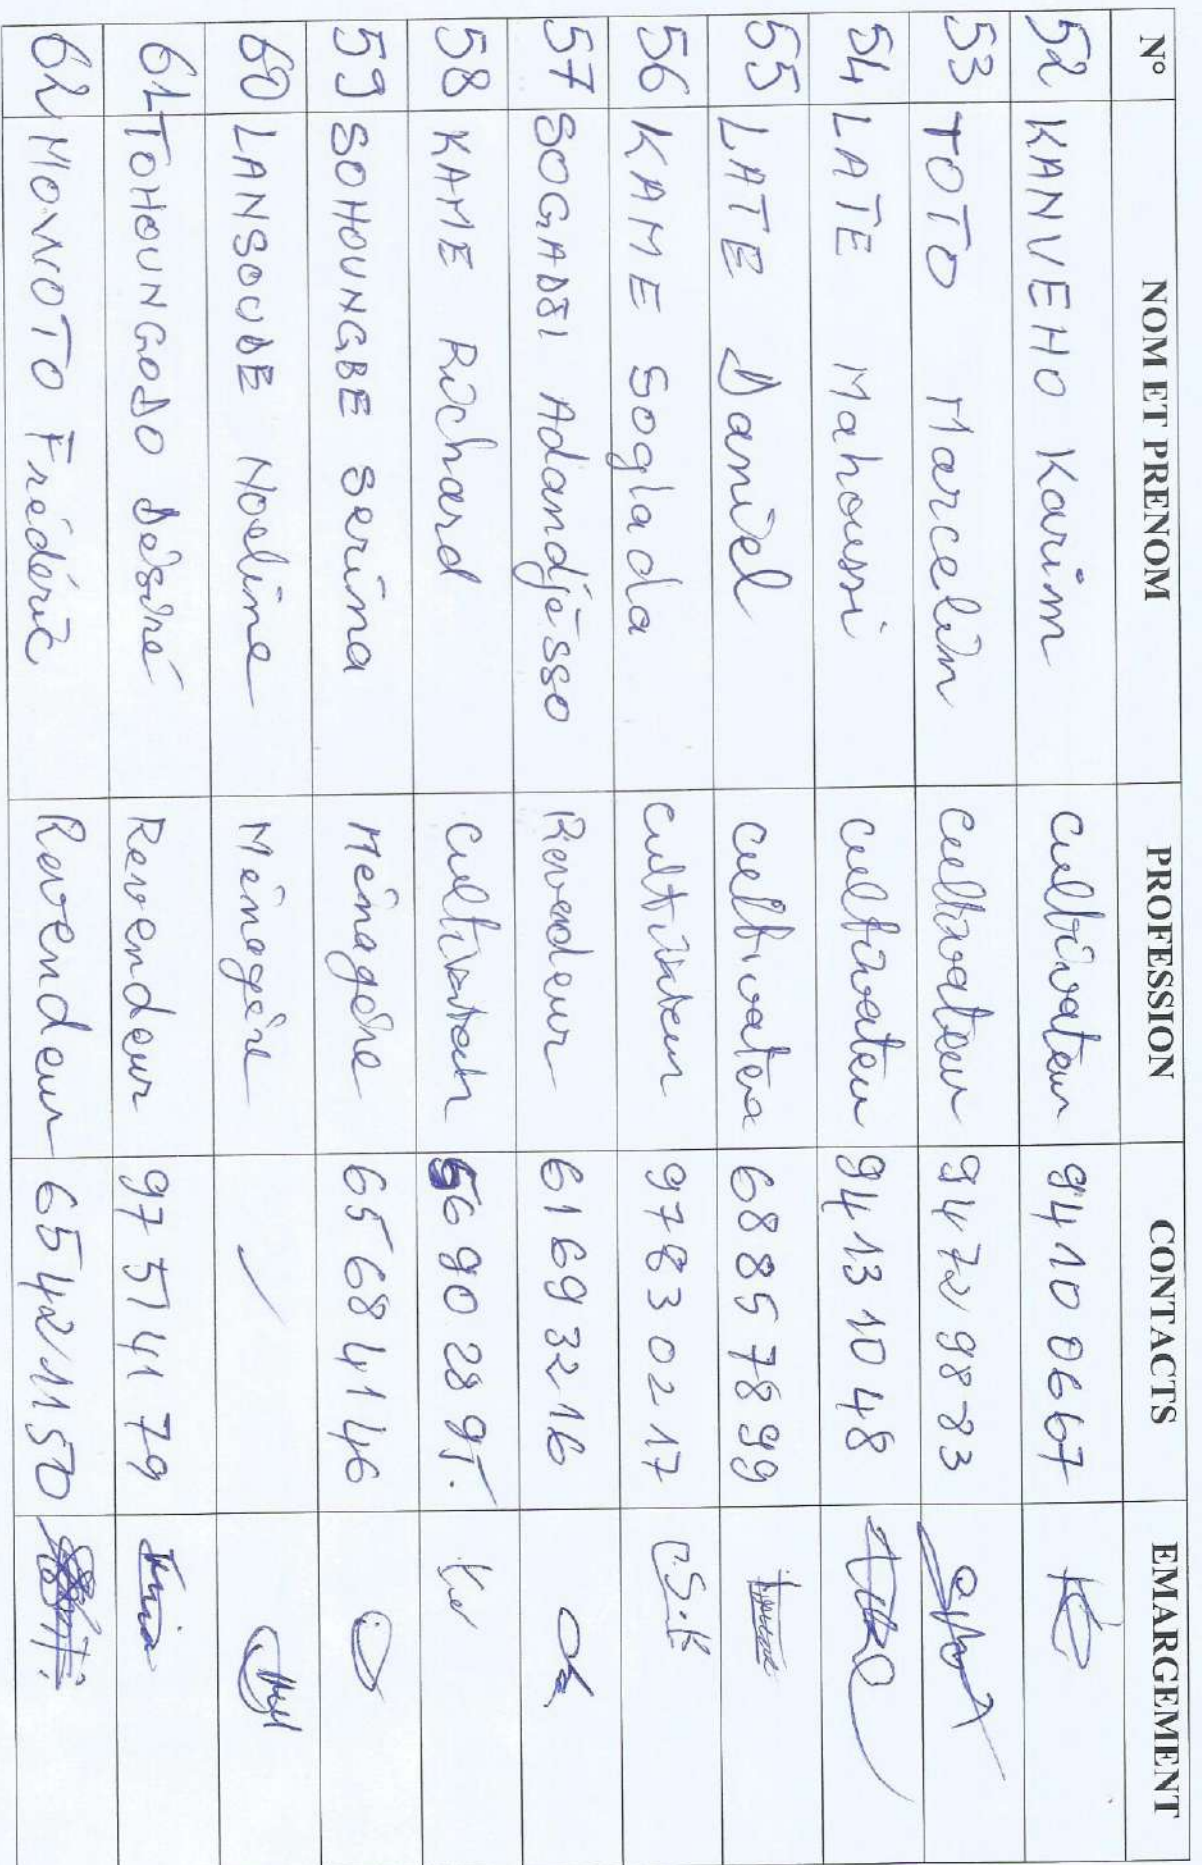 N° NOM ET PRENOM PROFESSION CONTACTS EMARGEMENT
52 KANVEHO Karim cultivateur 94 10 06 67
53 TOTO Marcelin cultivateur 94 72 98 83
54 LATE Mahoussi cultivateu 94 13 10 48
55 LATE Daniel cultivateu 68 85 78 99
56 KAME Soglada cultivateur 97 83 02 17
57 SOGADJI Adandjèsso Revendeur 61 69 32 16
58 KAME Richard cultivateur 56 90 28 95.
59 SOHOUNGBE Serina Ménagère 65 68 41 46
60 LANSOUDE Noeline Ménagère /
61 TOHOUNGODO Désiré Revendeur 97 57 41 79
62 Frédéric Revendeur 65 42 11 50